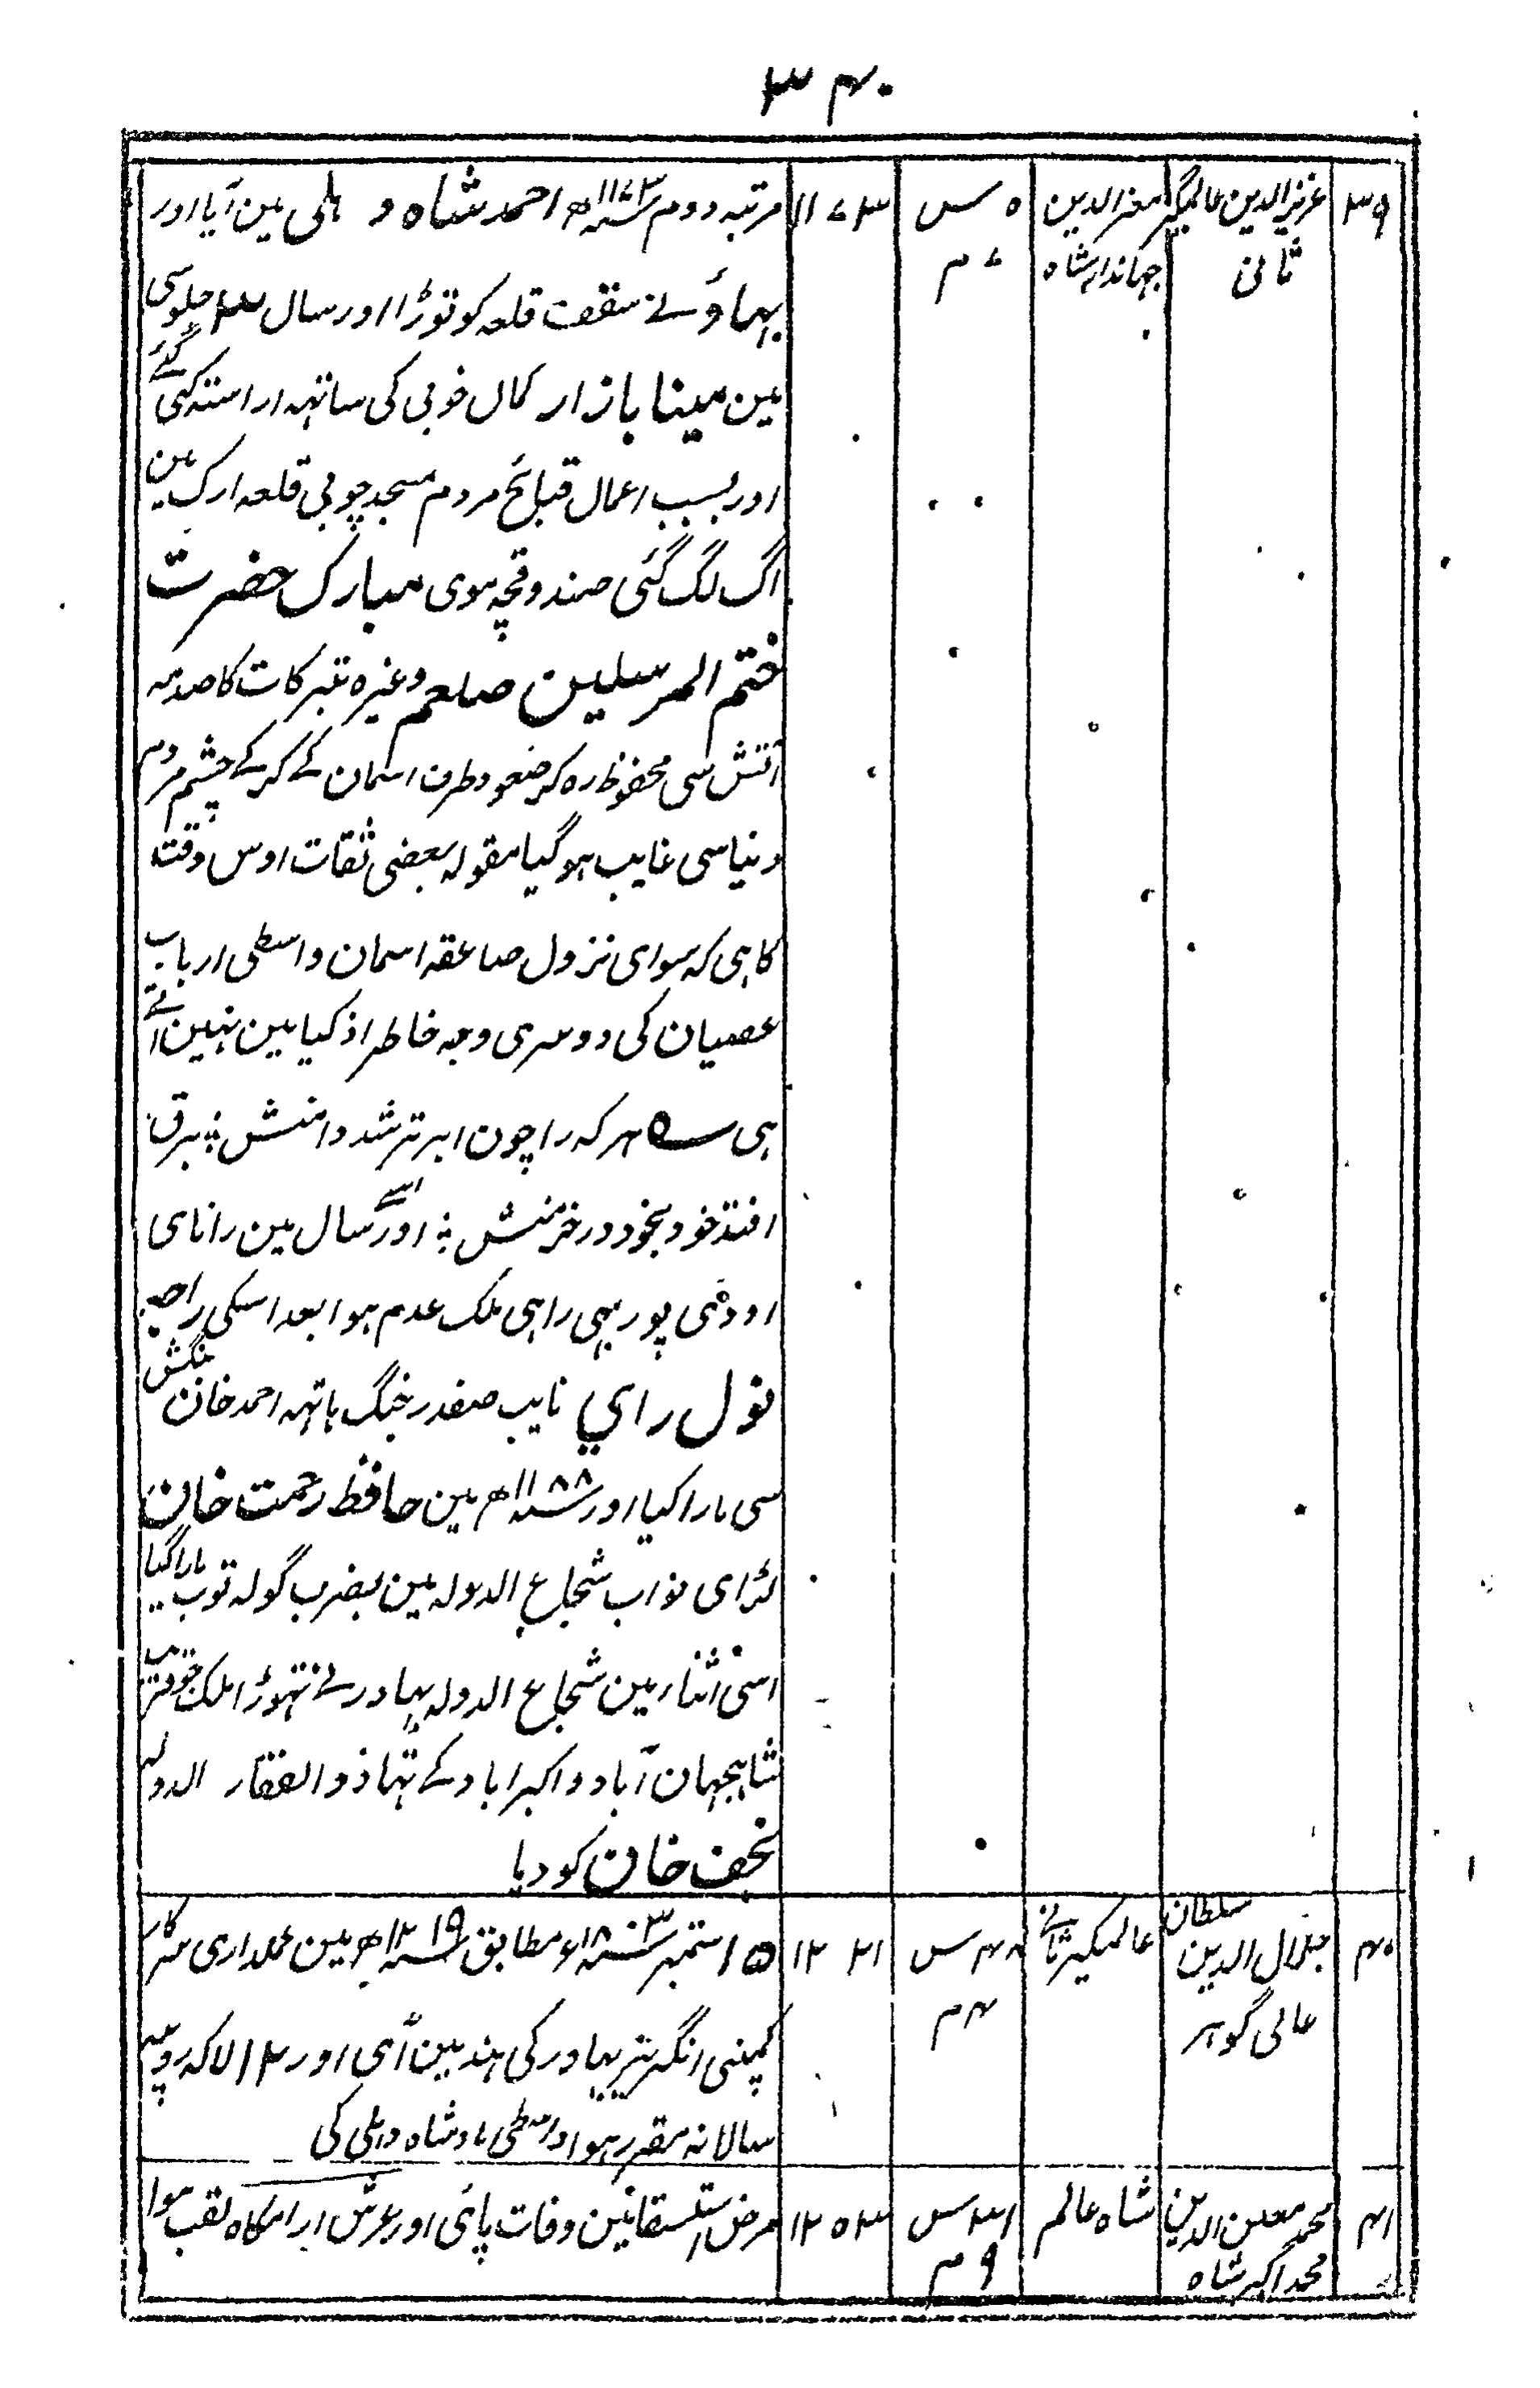 ۳۴۰
۳۹
عزیزالدین عالمگیر
ثانی
معزالدین
جہاندارشاہ
۵ س
۷ م
۱۱۷۳
مرتبہ دوم ۱۱۷۳ھ احمد شاہ دہلی مین آیا اور
بہاؤ نے سقف قلعہ کو توڑا اور سال ۳ جلوسی
مین مینا بازار کمال خوبی کی ساتہہ اراستہ کئی گئے
اور بسبب اعمال قبائح مردم مسجد چوبی قلعہ ارک مین
اگ لگ گئی صندوقچہ موی مبارک حضرت
ختم المرسلین صلعم وغیرہ تبرکات کا صدمہ
آتش سی محفوظ رہ کر صعود طرف اسمان کے کرکے چشم مردم
دنیا سی غایب ہوگیا مقولہ بعضی ثقات اوس وقت
کا ہی کہ سوای نزول صاعقہ اسمان واسطی ارباب
عصیان کی دوسری وجہ خاطر اذکیا مین نہین آتے
ہی ے ہر کہ را چون ابر تر شد دامنش ؛ برق
افتد خود بخود در خرمنش ؛ اور اسے سال مین رانای
اودی پور بہی راہی ملک عدم ہوا بعد اسکی راجہ
نول رای نایب صفدر جنگ ہاتہہ احمد خان بنگش
سی مارا گیا اور ۱۱۸۸ھ مین حافظ رحمت خان
لڑای نواب شجاع الدولہ مین بضرب گولہ توپ مارا گیا
اسی اثنا مین شجاع الدولہ بہادر نے تہوڑا ملک
شاہجہان آباد و اکبراباد کے تہا ذوالفقار الدولہ
نجف خان کو دیا
۴۰
جلال الدین سلطان
عالی گوہر
عالمگیر ثانے
۴۸ س
۴ م
۱۲۲۱
۱۵ ستمبر ۱۸۰۳ء مطابق ۱۲۱۹ھ مین عملداری سرکار
کمپنی انگریز بہادر کی ہند مین آی اور ۱۲ لاکہ روپیہ
سالانہ مقرر ہوا واسطی بادشاہ دہلی کی
۴۱
محمد معین الدین
محمد اکبر شاہ
شاہ عالم
۳۱ س
۹ م
۱۲۵۳
مرض استسقا مین وفات پائی اور عرش ارامگاہ لقب ہوا